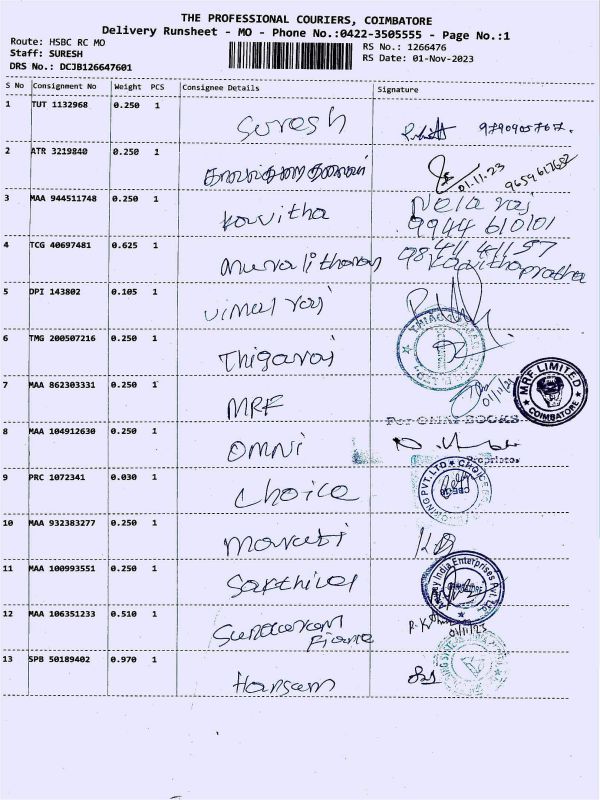 THE PROFESSIONAL COURIERS, COIMBATORE
Delivery Runsheet - MO - Phone No.:0422-3505555 - Page No.:1
Route: HSBC RC MO
RS No.: 1266476
Staff: SURESH
RS Date: 01-Nov-2023
DRS No.: DCJB126647601
S No Consignment No Weight PCS Consignee Details Signature
1 TUT 1132968 0.250 1 Suresh
2 ATR 3219840 0.250 1
01.11.23
3 MAA 944511748 0.250 1 Kavitha
9944 610101
4 TCG 40697481 0.625 1 muralitharan
5 DPI 143802 0.105 1 vimal raj
6 TMG 200507216 0.250 1 Thigaraj
7 MAA 862303331 0.250 1 MRF
MRF LIMITED
COIMBATORE
For OMNI BOOKS
8 MAA 104912630 0.250 1 OMNI
Proprietor
9 PRC 1072341 0.030 1 Choice
PVT.LTD CHOICE
10 MAA 932383277 0.250 1 Maruti
11 MAA 100993551 0.250 1 Sakthivel
India Enterprises Pvt. Ltd.
12 MAA 106351233 0.510 1 Sundaram
01/11/23
13 SPB 50189402 0.970 1 Hansam